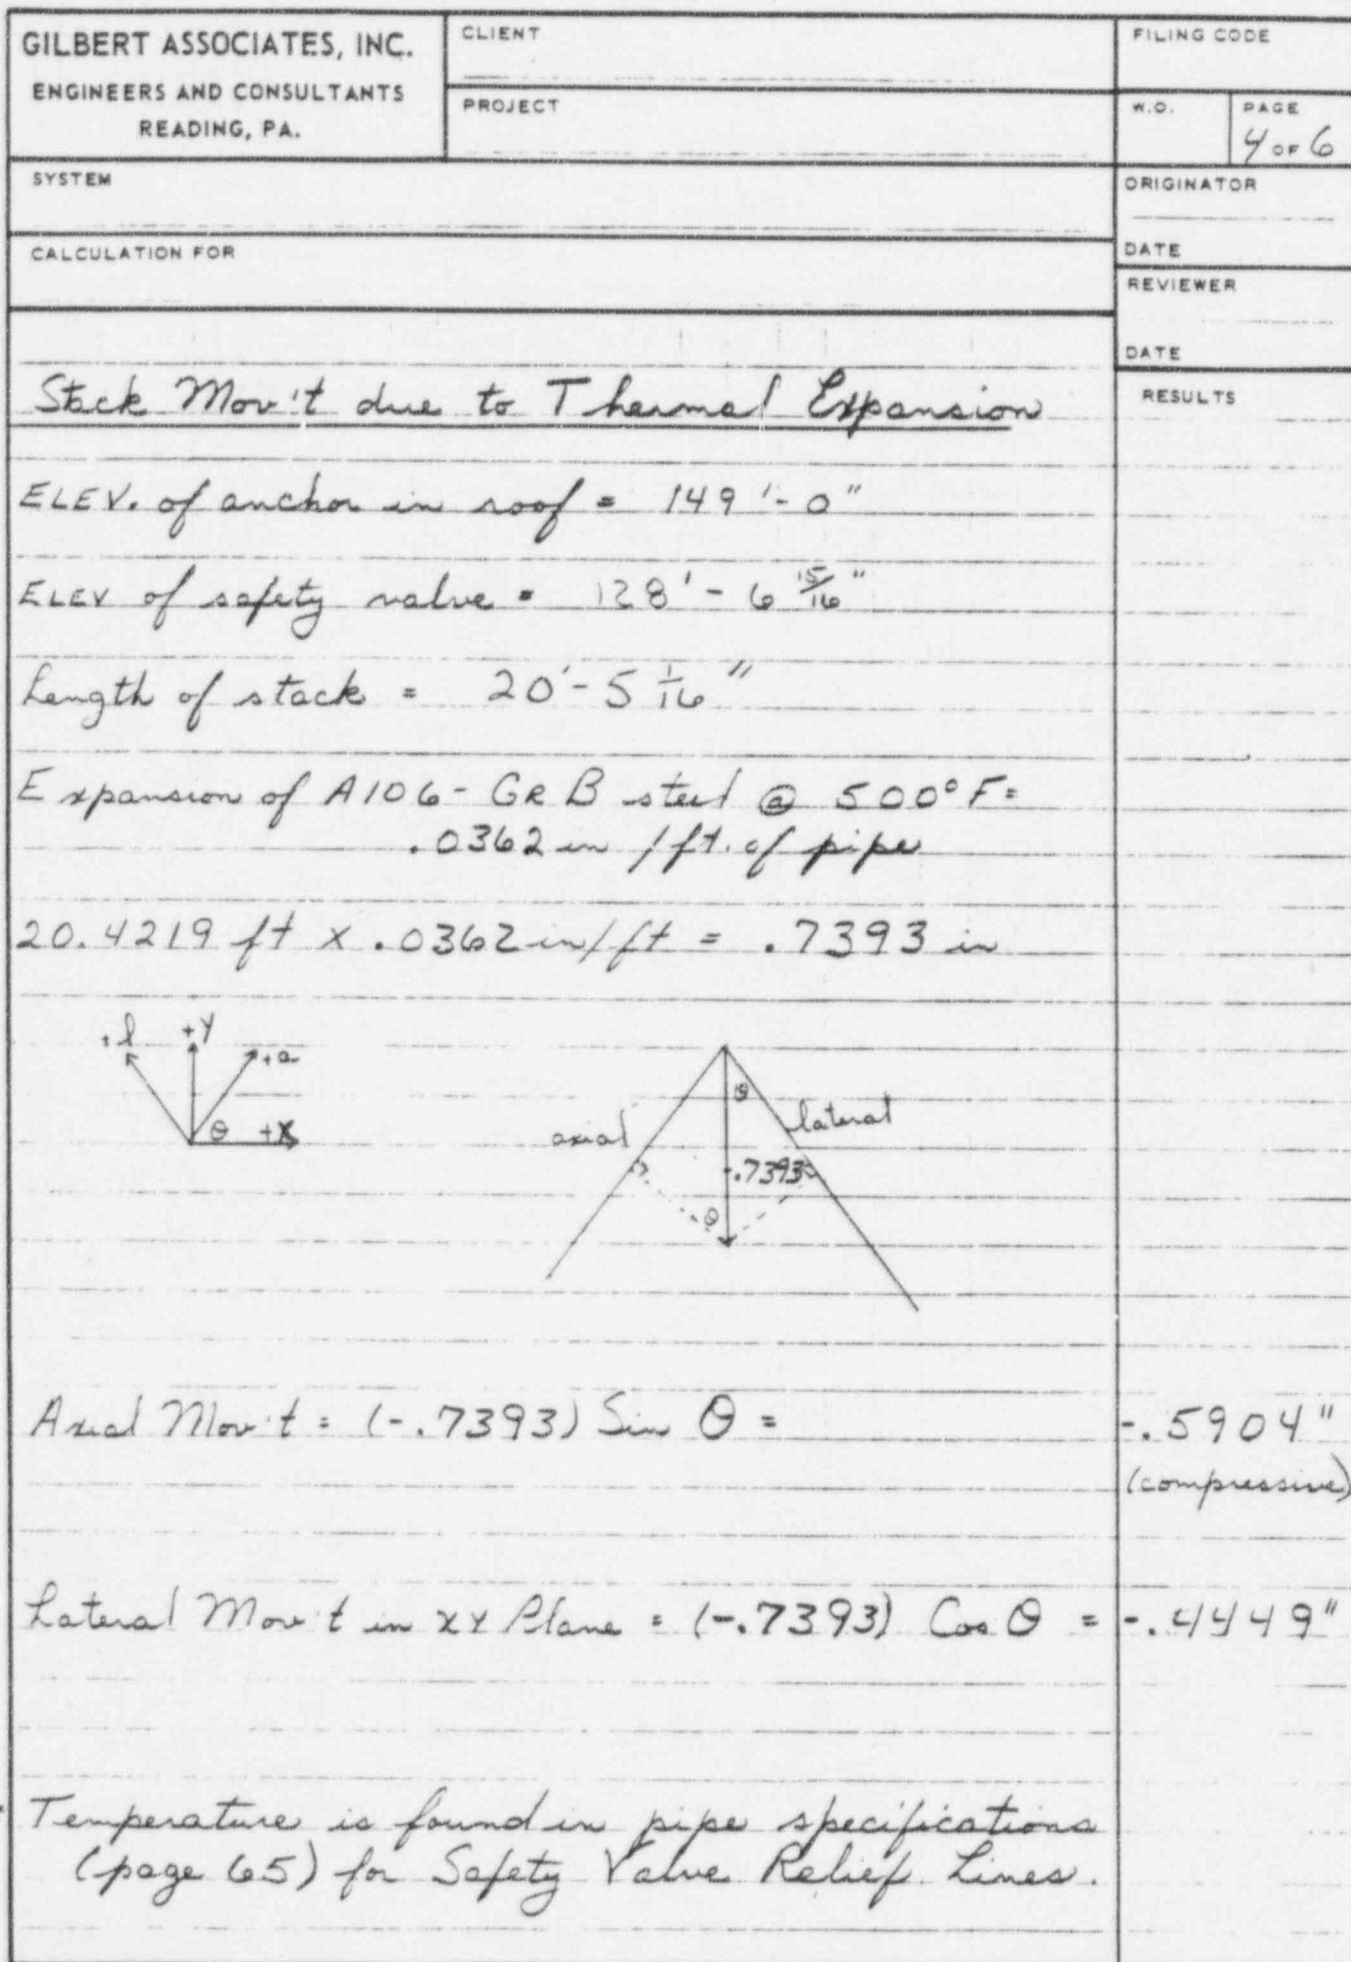 GILBERT ASSOCIATES, INC.
ENGINEERS AND CONSULTANTS
READING, PA.
CLIENT
PROJECT
FILING CODE
W.O.
PAGE
4 OF 6
SYSTEM
ORIGINATOR
DATE
CALCULATION FOR
REVIEWER
DATE
RESULTS
Stack Mov't due to Thermal Expansion
ELEV. of anchor in roof = 149'-0"
ELEV of safety valve = 128'-6 15/16"
Length of stack = 20'-5 1/16"
Expansion of A106-GR B steel @ 500°F=
.0362 in /ft. of pipe
20.4219 ft x .0362 in/ft = .7393 in
+l +Y +a
θ +X
θ
axial lateral
-.7393
θ
Axial Mov't = (-.7393) Sin θ = -.5904"
(compressive)
Lateral Mov't in XY Plane = (-.7393) Cos θ = -.4449"
Temperature is found in pipe specifications
(page 65) for Safety Valve Relief Lines.